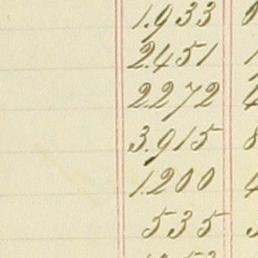 1.933
2.451
2272
3.915
1.200
535